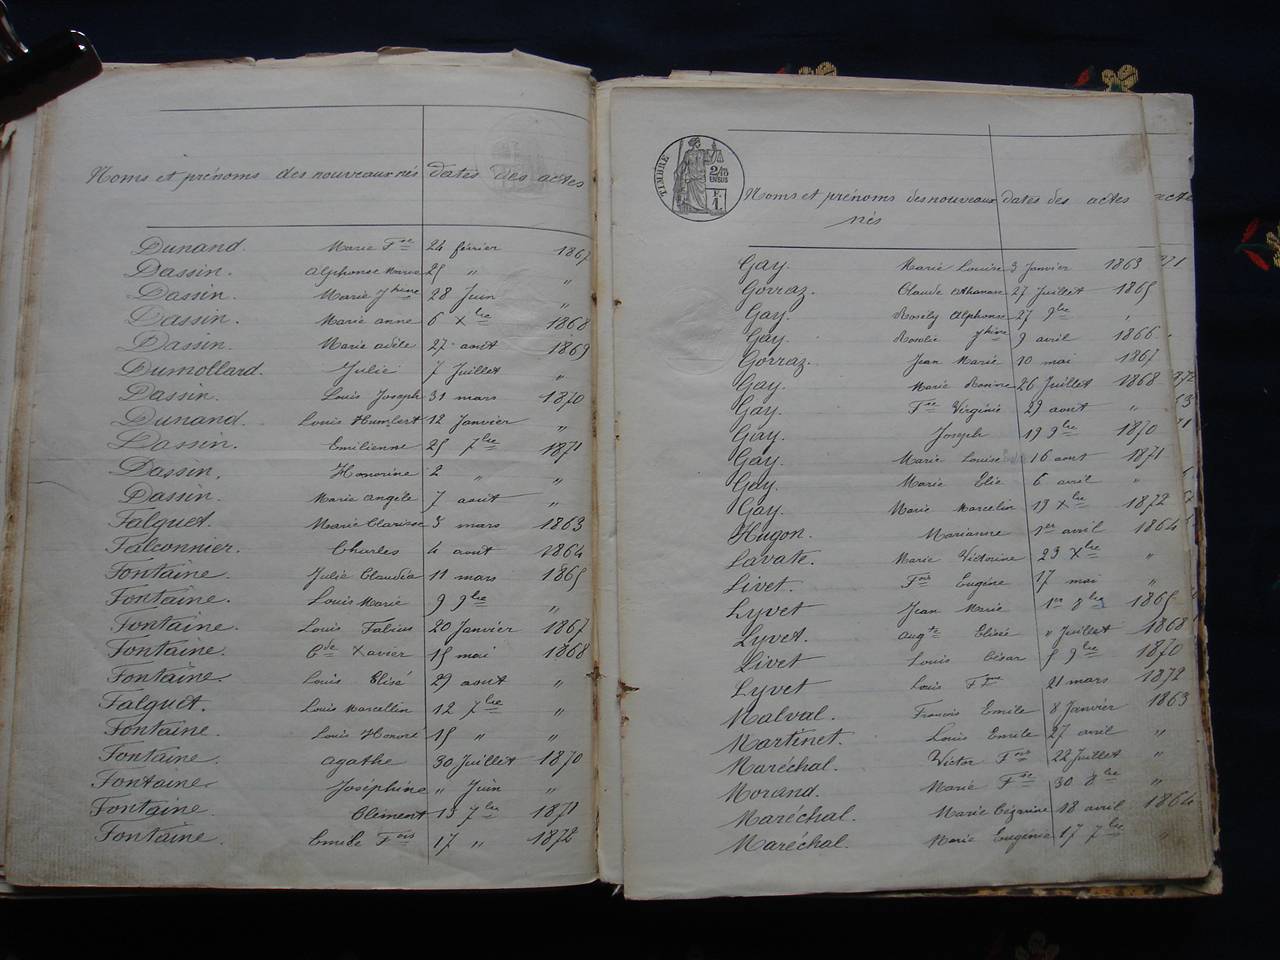 Noms et prénoms des nouveaux nés dates des actes
Dunand. Marie Fse 24 février 1867
Dassin. Alphonse Marie 25 " "
Dassin. Marie Jhine 28 Juin "
Dassin. Marie anne 6 Xbre 1868
Dassin. Marie adèle 27 août 1869
Dumollard. Julie 7 Juillet "
Dassin. Louis Joseph 31 mars 1870
Dunand. Louis Humbert 12 Janvier "
Dassin. Emilienne 25 7bre 1871
Dassin. Honorine 2 " "
Dassin. Marie angèle 7 août "
Falquet. Marie Clarisse 3 mars 1863
Falconnier. Charles 4 août 1864
Fontaine. Julie Claudia 11 mars 1865
Fontaine. Louis Marie 9 9bre "
Fontaine. Louis 20 Janvier 1867
Fontaine. Cde Xavier 15 mai 1868
Fontaine. Louis Elisé 29 août "
Falquet. Louis Marcellin 12 7bre "
Fontaine. Louis Honoré 15 " "
Fontaine. agathe 30 Juillet 1870
Fontaine. Joséphine " Juin "
Fontaine. Clément 13 7bre 1871
Fontaine. Emile Fois 17 " 1872
TIMBRE
2/10
EN SUS
F.
1.
Noms et prénoms des nouveaux dates des actes acte
nés
Gay. Marie Louise 3 Janvier 1863 71
Gorraz. Claude Athanase 27 Juillet 1865
Gay. Rosely Alphonse 27 9bre "
Gay. Rosalie Jhine 9 avril 1866
Gorraz. Jean Marie 10 mai 1867
Gay. Marie 26 Juillet 1868 72
Gay. Fse Virginie 29 août " 3
Gay. Joseph 19 9bre 1870 1
Gay. Marie Louise 16 août 1871
Gay. Marie Elie 6 avril "
Gay. Marie Marcelin 13 Xbre 1872
Hugon. Marianne 1er avril 1864
Lavate. Marie Victorine 23 Xbre "
Livet. Fois Eugène 17 mai "
Lyvet Jean Marie 1er 8bre 1865
Lyvet. Augte Elisée " Juillet 1868
Livet Louis César 5 9bre 1870
Lyvet Louis 21 mars 1872
Malval. François Emile 8 Janvier 1863
Martinet. Louis Emile 27 avril "
Maréchal. Victor Fois 22 Juillet "
Morand. Marie Fse 30 8bre "
Maréchal. Marie Césarine 18 avril 1864
Maréchal. Marie Eugénie 17 7bre "